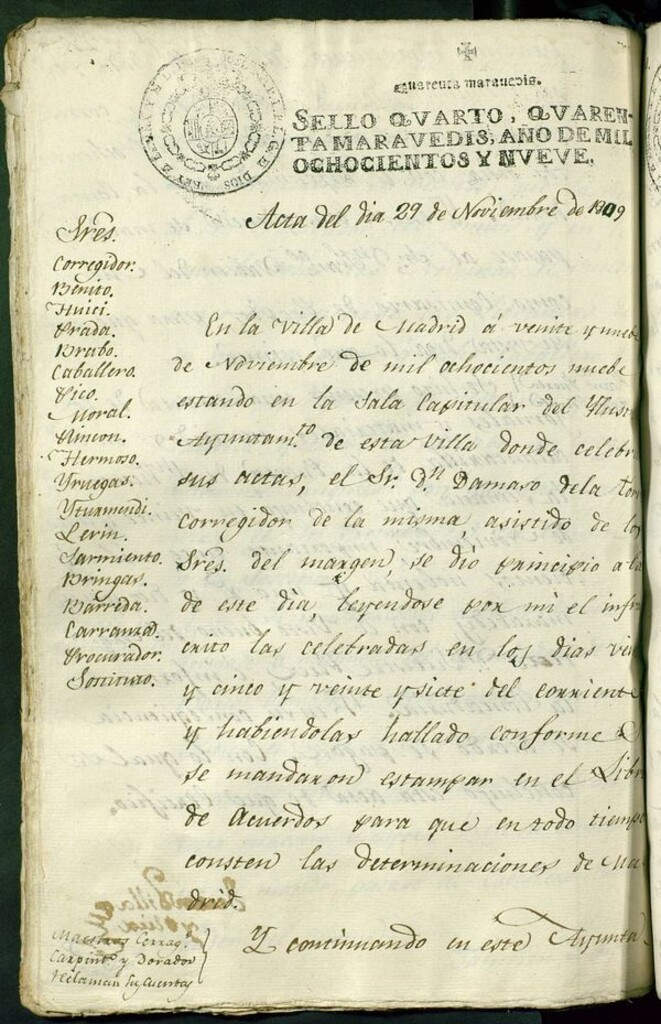 quarenta maravedis.
SELLO QVARTO, QVAREN-
TA MARAVEDIS, AÑO DE MIL
OCHOCIENTOS Y NVEVE.
Acta del dia 29 de Noviembre de 1809
Sres.
Corregidor.
Benito.
Huici.
Prada.
Brabo.
Caballero.
Pico.
Moral.
Rincon.
Hermoso.
Yruegas.
Yturmendi.
Lerin.
Sarmiento.
Bringas.
Barreda.
Carranza.
Procurador.
Sostituto.
En la Villa de Madrid á veinte y nuebe
de Noviembre de mil ochocientos nuebe
estando en la Sala Capitular del Ylus
Ayuntam.to de esta Villa donde celebr
sus actas, el Sr. Dn. Damaso dela Tor
Corregidor de la misma, asistido de los
Sres. del margen, se dio principio a la
de este dia, leyendose por mi el infr
crito las celebradas en los dias vei
y cinco y veinte y siete del corriente
y habiendolas hallado conforme
se mandaron estampar en el Libr
de Acuerdos para que en todo tiemp
consten las determinaciones de Ma
drid.
Maestros Cerrag.
Carpint.o y Dorador
reclaman sus cuentas
Y continuando en este Ayunta